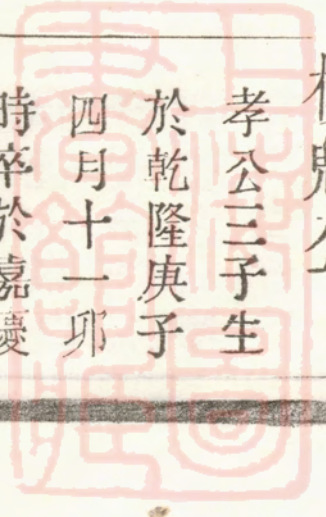 孝公三子生
於乾隆庚子
四月十一卯
時卒於嘉慶